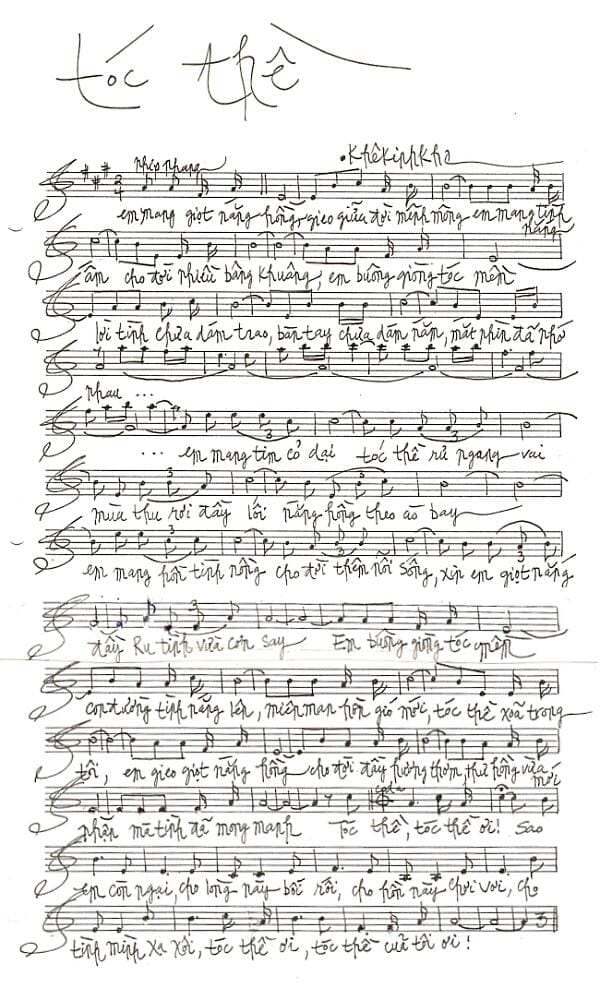 tóc thề
nhịp nhàng
Khê Kinh Kha
2
4
em mang giọt nắng hồng, gieo giữa đời mênh mông em mang tình nàng
ấm cho đời nhiều bâng khuâng, em buông giòng tóc mềm
lời tình chưa dám trao, bàn tay chưa dám nắm, mắt nhìn đã nhớ
nhau ...
... em mang tim cỏ dại tóc thề rủ ngang vai
3
3
mùa thu rơi đầy lối nắng hồng theo áo bay
3
3
em mang hồn tình nồng cho đời thêm nỗi sống, xin em giọt nắng
3
3
3
đầy Ru tình vừa cơn say Em buông giòng tóc mềm
3
con đường tình nắng lên, miên man hồn gió mới, tóc thề xõa trong
tôi, em gieo giọt nắng hồng cho đời đầy hương thơm thư hồng vừa mới
nhận mà tình đã mong manh Tóc thề, tóc thề ơi! Sao
coda
em còn ngại, cho lòng này bối rối, cho hồn này chơi vơi, cho
tình mình xa xôi, tóc thề ơi, tóc thề của tôi ơi!
3